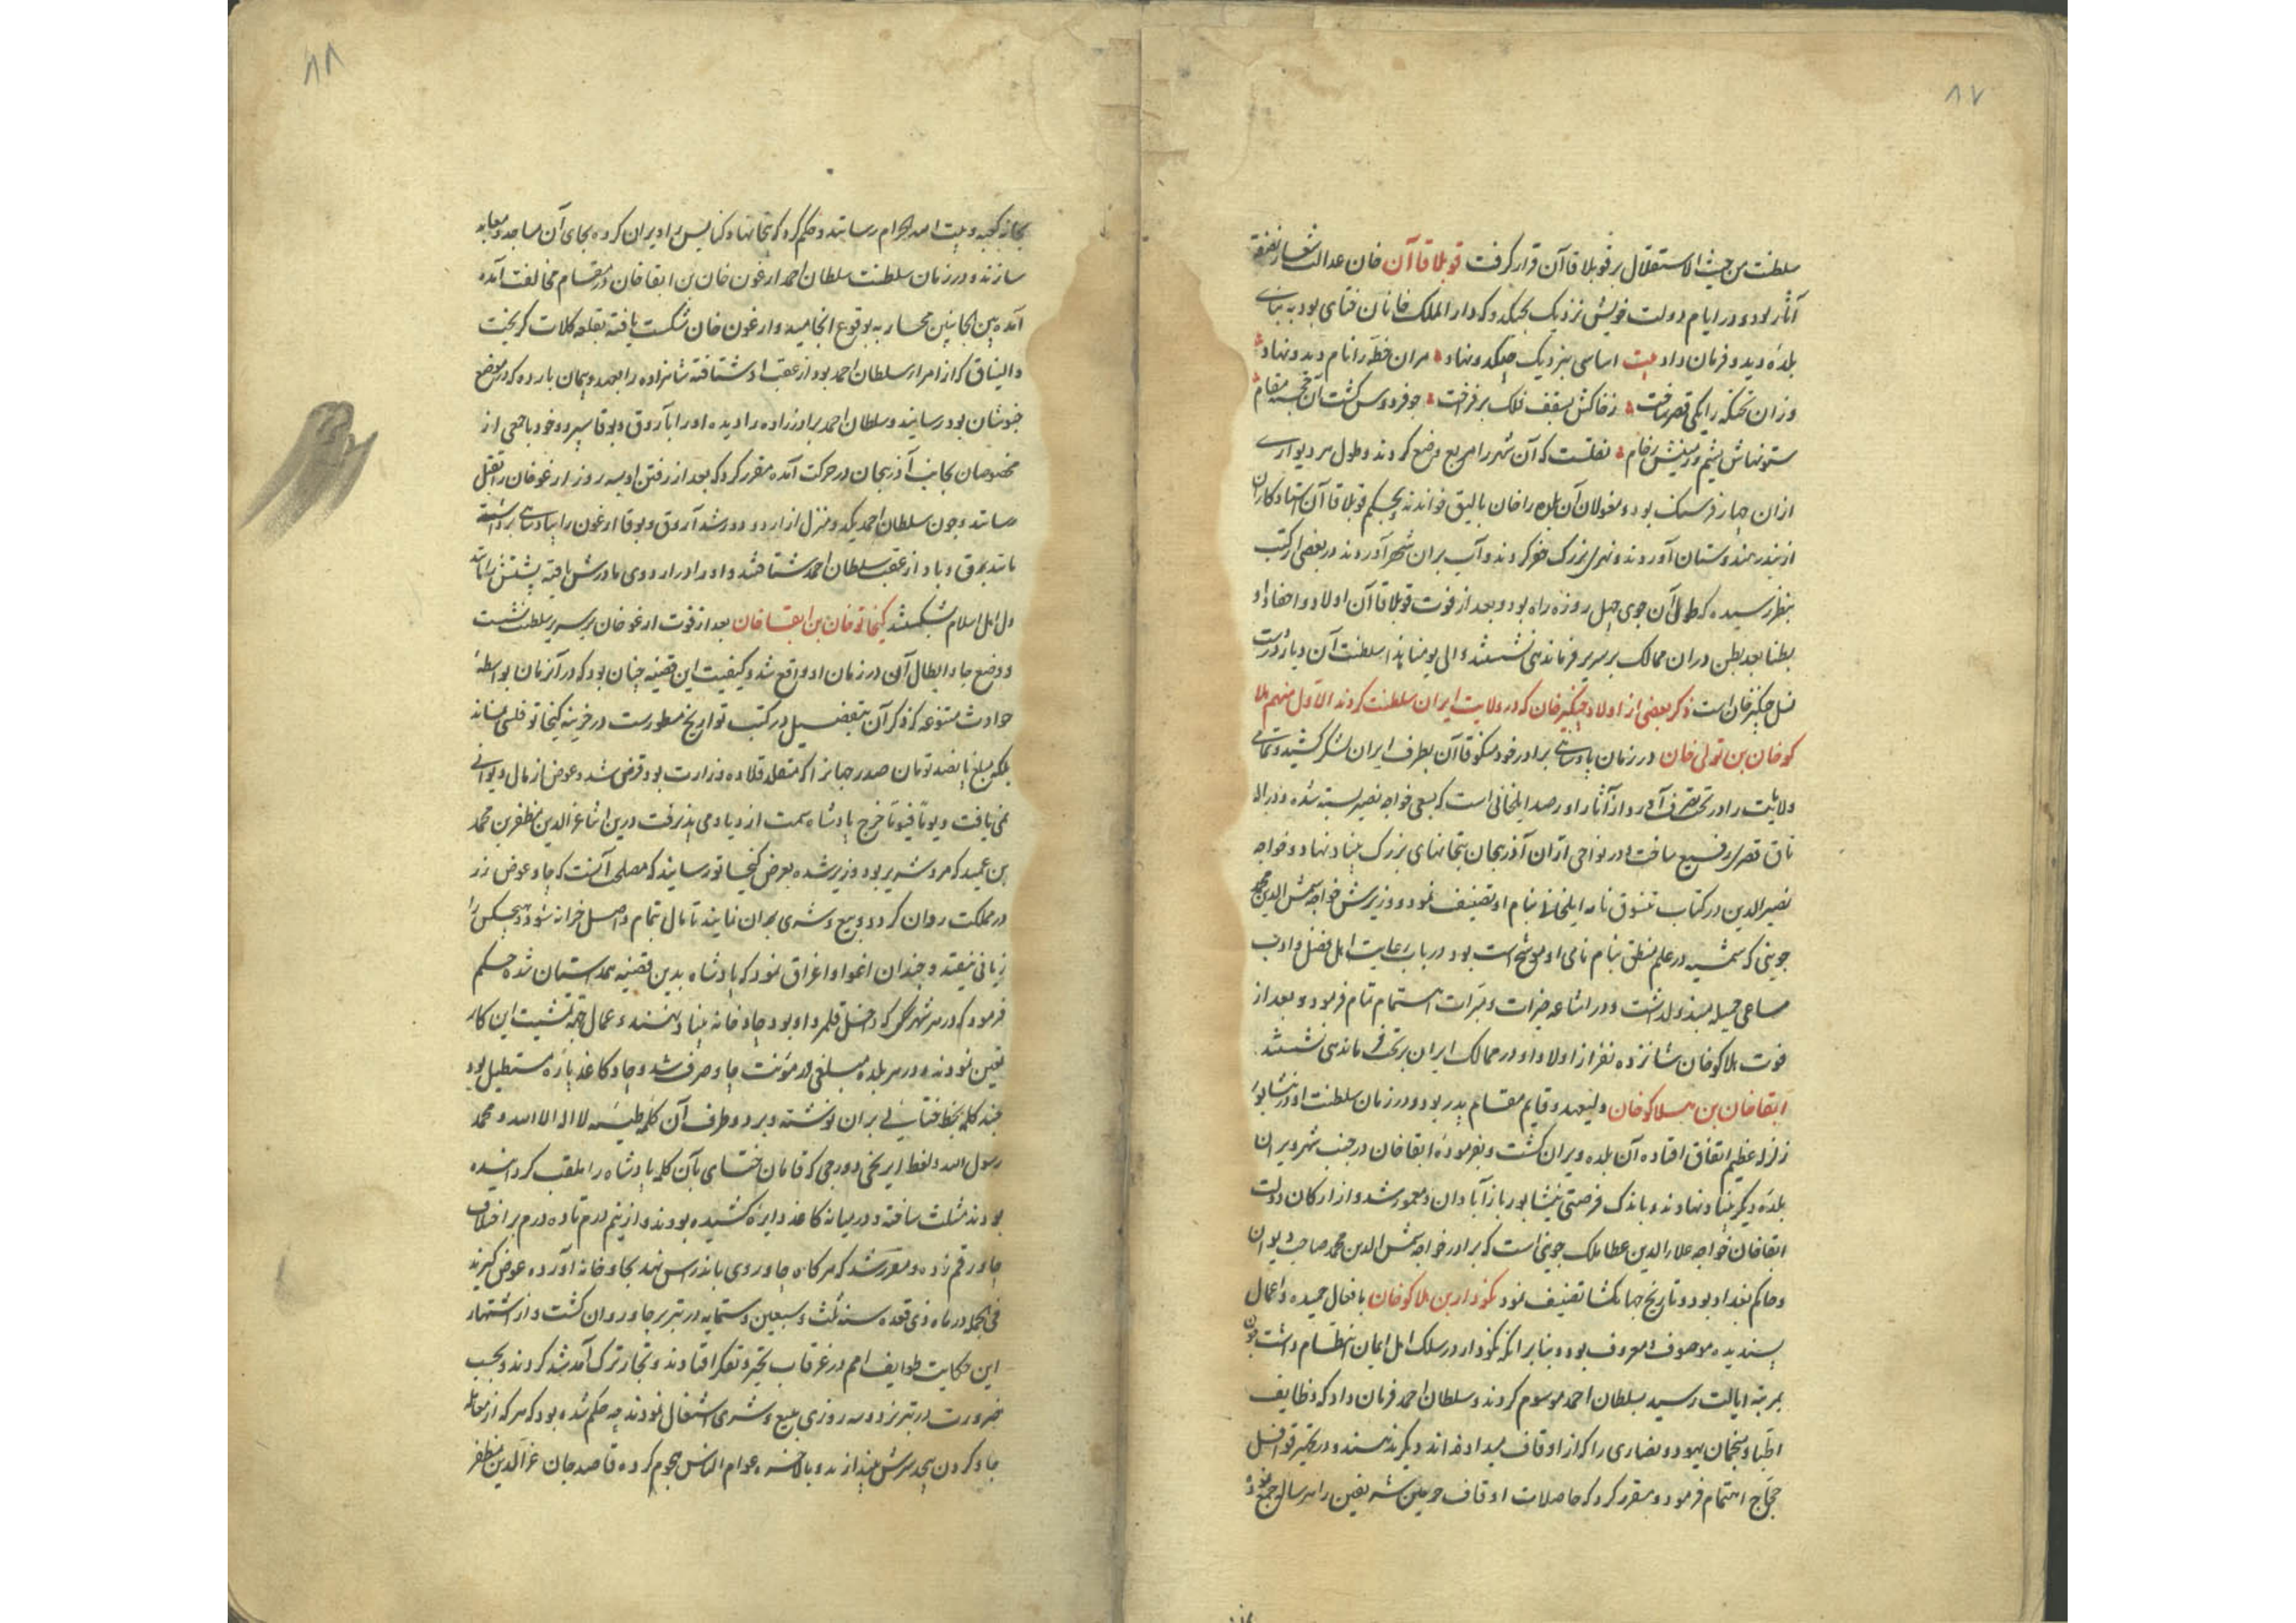 ۸۷
سلطنت من حیث الاستقلال بر قوبلا قاآن قرار گرفت قوبلا قاآن خان عدالت شعار
آثار بود و در ایام دولت خویش نزدیک بجنکدو که دار الملک خانان ختای بود به بنای
بلده دید و فرمان داد بیت اساسی بنزدیک جنکدو نهاد مران خطه را نام دیدو نهاد
وزان تختکه را یکی قصر ساخت ز خاکش بسقف فلک بر فراخت چو فردوس گشت آن خجسته مقام
ستونهاش یشم و زمینش رخام نقلست که آن شهر را مربع وضع کردند و طول هر دیواری
ازان چهار فرسنک بود و مغولان آن بلده را خان بالیق خواندند بحکم قوبلا قاآن استادکاران
از بندر هندوستان آوردند و نهری بزرک حفر کردند و آب بران شهر آوردند در بعضی از کتب
بنظر رسیده که طول آن جوی چهل روزه راه بود و بعد از فوت قوبلا قاآن اولاد و احفاد او
بطنا بعد بطن دران ممالک بر سریر فرماندهی نشستند و الی یومنا هذا سلطنت آن دیار در دست
نسل چنکیز خان است ذکر بعضی از اولاد چنکیز خان که در ولایت ایران سلطنت کردند الاول منهم هلا
کو خان بن تولی خان در زمان پادشاهی برادر خود منکو قاآن بطرف ایران لشکر کشید و تمامی
ولایت را در تحت تصرف آورد از آثار او رصد ایلخانی است که بسعی خواجه نصیر بسته شده و در الا
تاق قصری رفیع ساخت و در نواحی اران آذربیجان بتخانهای بزرک بنیاد نهاد و خواجه
نصیر الدین در کتاب تنسوق نامه ایلخانی بنام او تصنیف نمود و وزیرش خواجه شمس الدین محمد
جوینی که شمسیه در علم منطق بنام نامی او موشح است بود در باب رعایت اهل فضل و ادب
مساعی جمیله مبذول داشت و در اشاعه خیرات و مبرات اهتمام تمام فرمود و بعد از
فوت هلاکو خان شانزده نفر از اولاد او در ممالک ایران بر تخت فرماندهی نشستند
ابقا خان بن هلاکو خان ولیعهد و قایم مقام پدر بود و در زمان سلطنت او در نشابور
زلزله عظیم اتفاق افتاده آن بلده ویران گشت و بفرموده ابقا خان در جنب شهر ویران
بلده دیگر بنیاد نهادند و باندک فرصتی نیشابور باز آبادان و معمور شد و از ارکان دولت
ابقا خان خواجه علاء الدین عطا ملک جوینی است که برادر خواجه شمس الدین محمد صاحب دیوان
و حاکم بغداد بود و تاریخ جهانکشا تصنیف نمود نکودار بن هلاکو خان بافعال حمیده و اعمال
پسندیده موصوف و معروف بود و بنا بر انکه نکودار در سلک اهل ایمان انتظام داشت چون
بمرتبه ایالت رسید بسلطان احمد موسوم کردند و سلطان احمد فرمان داد که وظایف
اطبا و منجمان یهود و نصاری را که از اوقاف میداده اند دیگر ندهند و در تجهیز قوافل
حجاج اهتمام فرمود و مقرر کرد که حاصلات اوقاف حرمین شریفین را هر سال جمع نموده
۸۸
بخازن کعبه و بیت الله الحرام رسانند و حکم کرد که بتخانها و کنایس را ویران کرده بجای آن مساجد و معابد
سازند و در زمان سلطنت سلطان احمد ارغون خان بن ابقا خان در مقام مخالفت آمده
آمده بین الجانبین محاربه بوقوع انجامید و ارغون خان شکست یافته بقلعه کلات گریخت
و الیناق که از امراء سلطان احمد بود از عقب او شتافته شانزاده را بعهد و پیمان بارده که در موضع
خبوشان بود رسانید و سلطان احمد برادرزاده را دیده او را بآروق و بوقا سپرد و خود با جمعی از
مخصوصان بجانب آذربیجان در حرکت آمده مقرر کرد که بعد از رفتن او سه روز ارغو خان را بقتل
رسانند و چون سلطان احمد یکدو منزل از اردو دور شد آروق و بوقا ارغون را بپادشاهی برداشته
مانند برق و باد از عقب سلطان احمد شتافتند و او را در اردوی مادرش یافته پشتش را مانند
دل اهل اسلام بشکستند کیخاتو خان بن ابقا خان بعد از فوت ارغو خان بر سریر سلطنت نشست
و وضع چاو ابطال آن در زمان او واقع شد و کیفیت این قضیه چنان بود که در آن زمان بواسطه
حوادث متنوعه که ذکر آن بتفصیل در کتب تواریخ مسطورست در خزینه کیخاتو فلسی نماند
بلکه مبلغ پانصد تومان صدر جهانرا که متقلد قلاده وزارت بود قرض شد و عوض از مال دیوانی
نمی یافت و یوما فیوما خرج پادشاه سمت ازدیاد می پذیرفت درین اثنا عز الدین مظفر بن محمد
بن عمید که مرد شریر بود وزیر شده بعرض کیخاتو رسانید که مصلحت آنست که چاو عوض زر
در مملکت روان گردد و بیع و شری بدان نمایند تا مال بتمام واصل خزانه شود و هیچکس را
زیانی نیفتد و چندان اغوا و اغراق نمود که پادشاه بدین قضیه همداستان شده حکم
فرمود که در هر شهری که داخل قلمرو او بود چاو خانه بنیاد نهند و عمال جهة تمشیت این کار
تعین نمودند و در هر بلده مبلغی در مؤنت چاو صرف شد و چاو کاغذ پاره مستطیل بود
چند کلمه بخط ختایی بران نوشته و بر دو طرف آن کلمه طیبه لا اله الا الله و محمد
رسول الله و لفظ ایرنجی دورجی که قامان ختای بآن کلمه پادشاه را ملقب کردانیده
بودند مثلث ساخته و در میانه کاغذ دایره کشیده بودند و از نیم درم تا ده درم بر اختلاف
چاو رقم زده و مقرر شد که هرکاه چاو روی باندراس نهد بچاو خانه آورده عوض گیرند
فی الجمله در ماه ذی قعده سنه ثلث و سبعین و ستمایه در تبریز چاو روان گشت و از اشتهار
این حکایت طوایف امم در غرقاب تحیر و تفکر افتادند و تجار ترک آمد شد کردند و بحسب
ضرورت در تبریز دو سه روزی ببیع و شری اشتغال نمودند چه حکم شده بود که هر که از معامله
چاو گردن پیچد سرش بیندازند و بالاخره عوام الناس هجوم کرده قاصد جان عز الدین مظفر